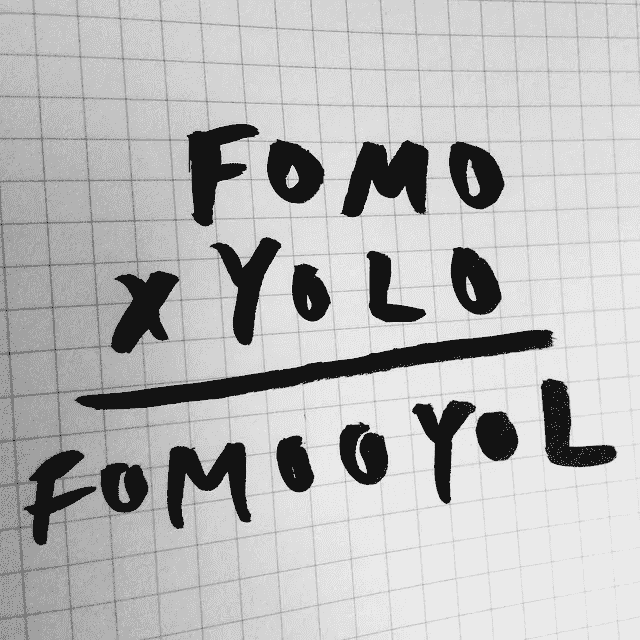 FOMO
x YOLO
FOMOOYOL